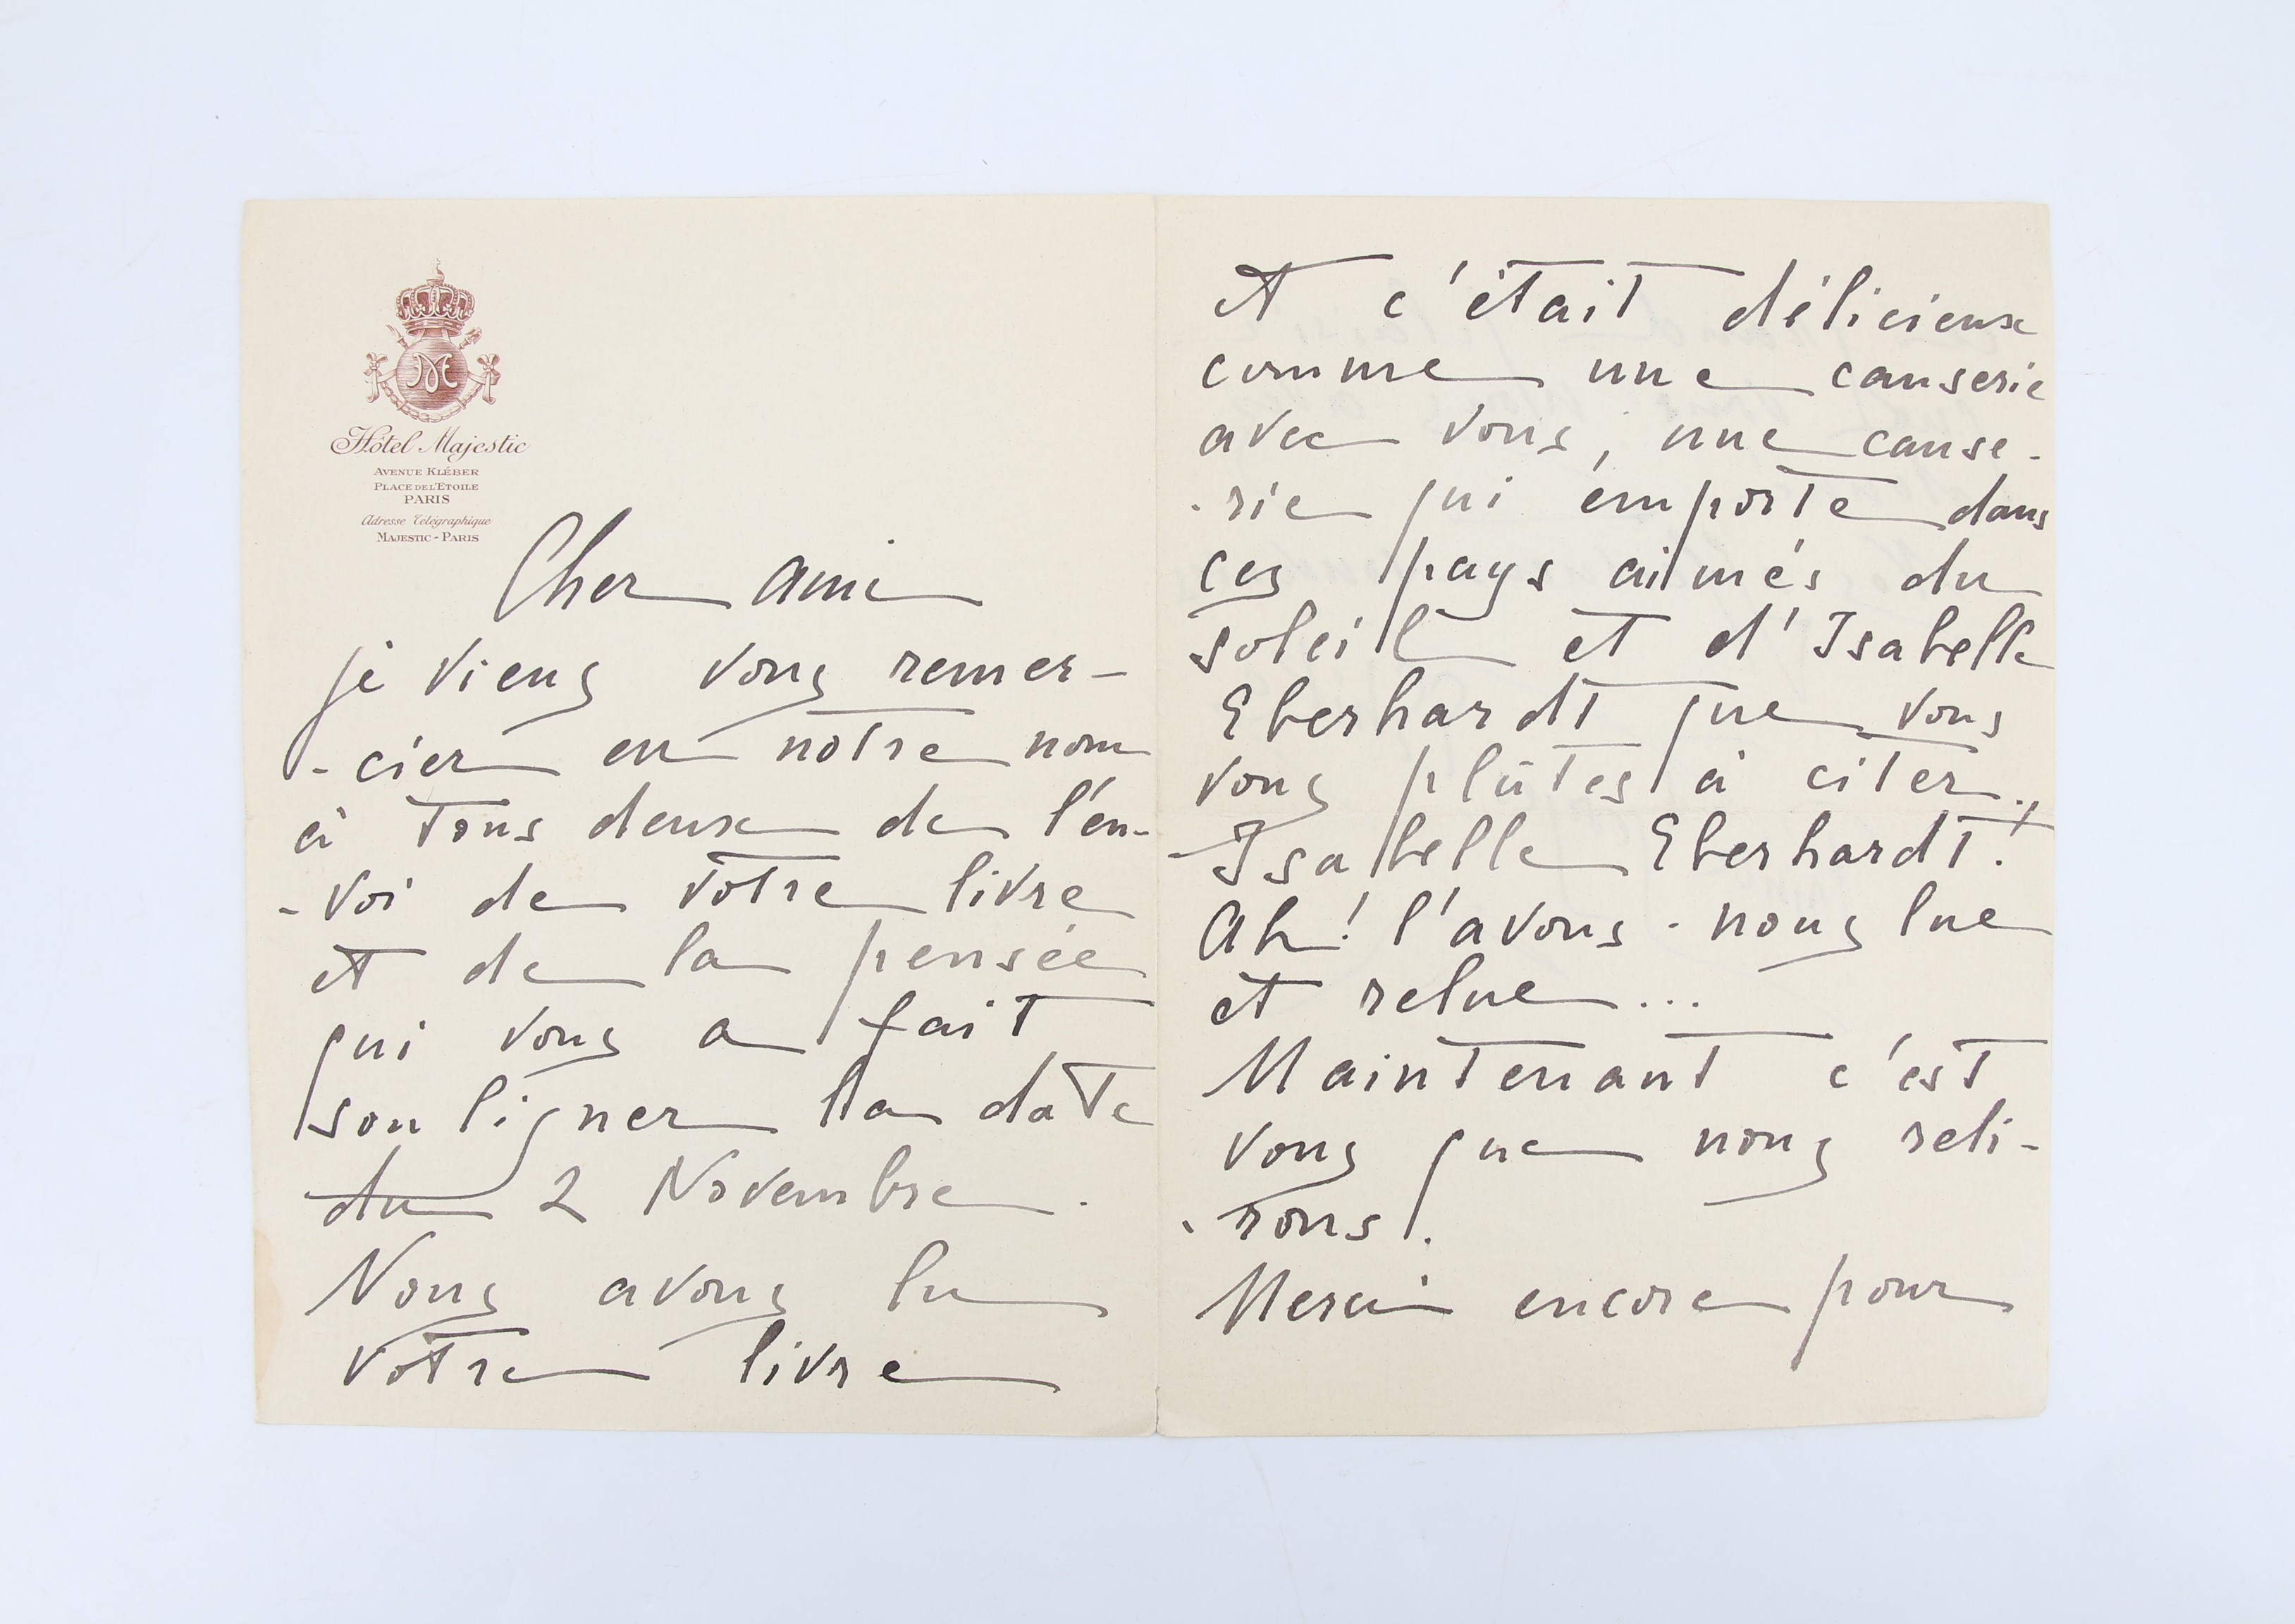 M
Hôtel Majestic
AVENUE KLÉBER
PLACE DE L'ETOILE
PARIS
Adresse Télégraphique
MAJESTIC - PARIS
Cher ami
je viens vous remer-
-cier en notre nom
à tous deux de l'en-
-voi de votre livre
et de la pensée
qui vous a fait
souligner la date
du 2 Novembre.
Nous avons lu
votre livre
et c'était délicieux
comme une causerie
avec vous, une cause-
-rie qui emporte dans
ces pays aimés du
soleil et d'Isabelle
Eberhardt que vous
vous plûtes à citer.,
Isabelle Eberhardt!
Ah! l'avons-nous lue
et relue...
Maintenant c'est
vous que nous reli-
-rons.
Merci encore pour